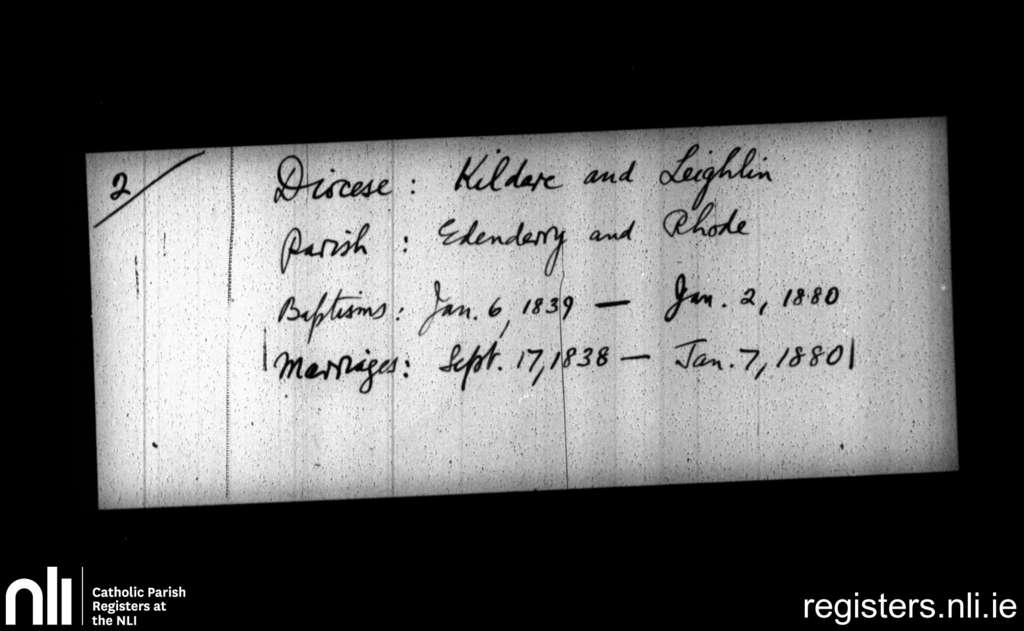 2
Diocese: Kildare and Leighlin
Parish: Edenderry and Rhode
Baptisms: Jan. 6, 1839 — Jan. 2, 1880
|Marriages: Sept. 17, 1838 — Jan. 7, 1880|
nli
Catholic Parish
Registers at
the NLI
registers.nli.ie